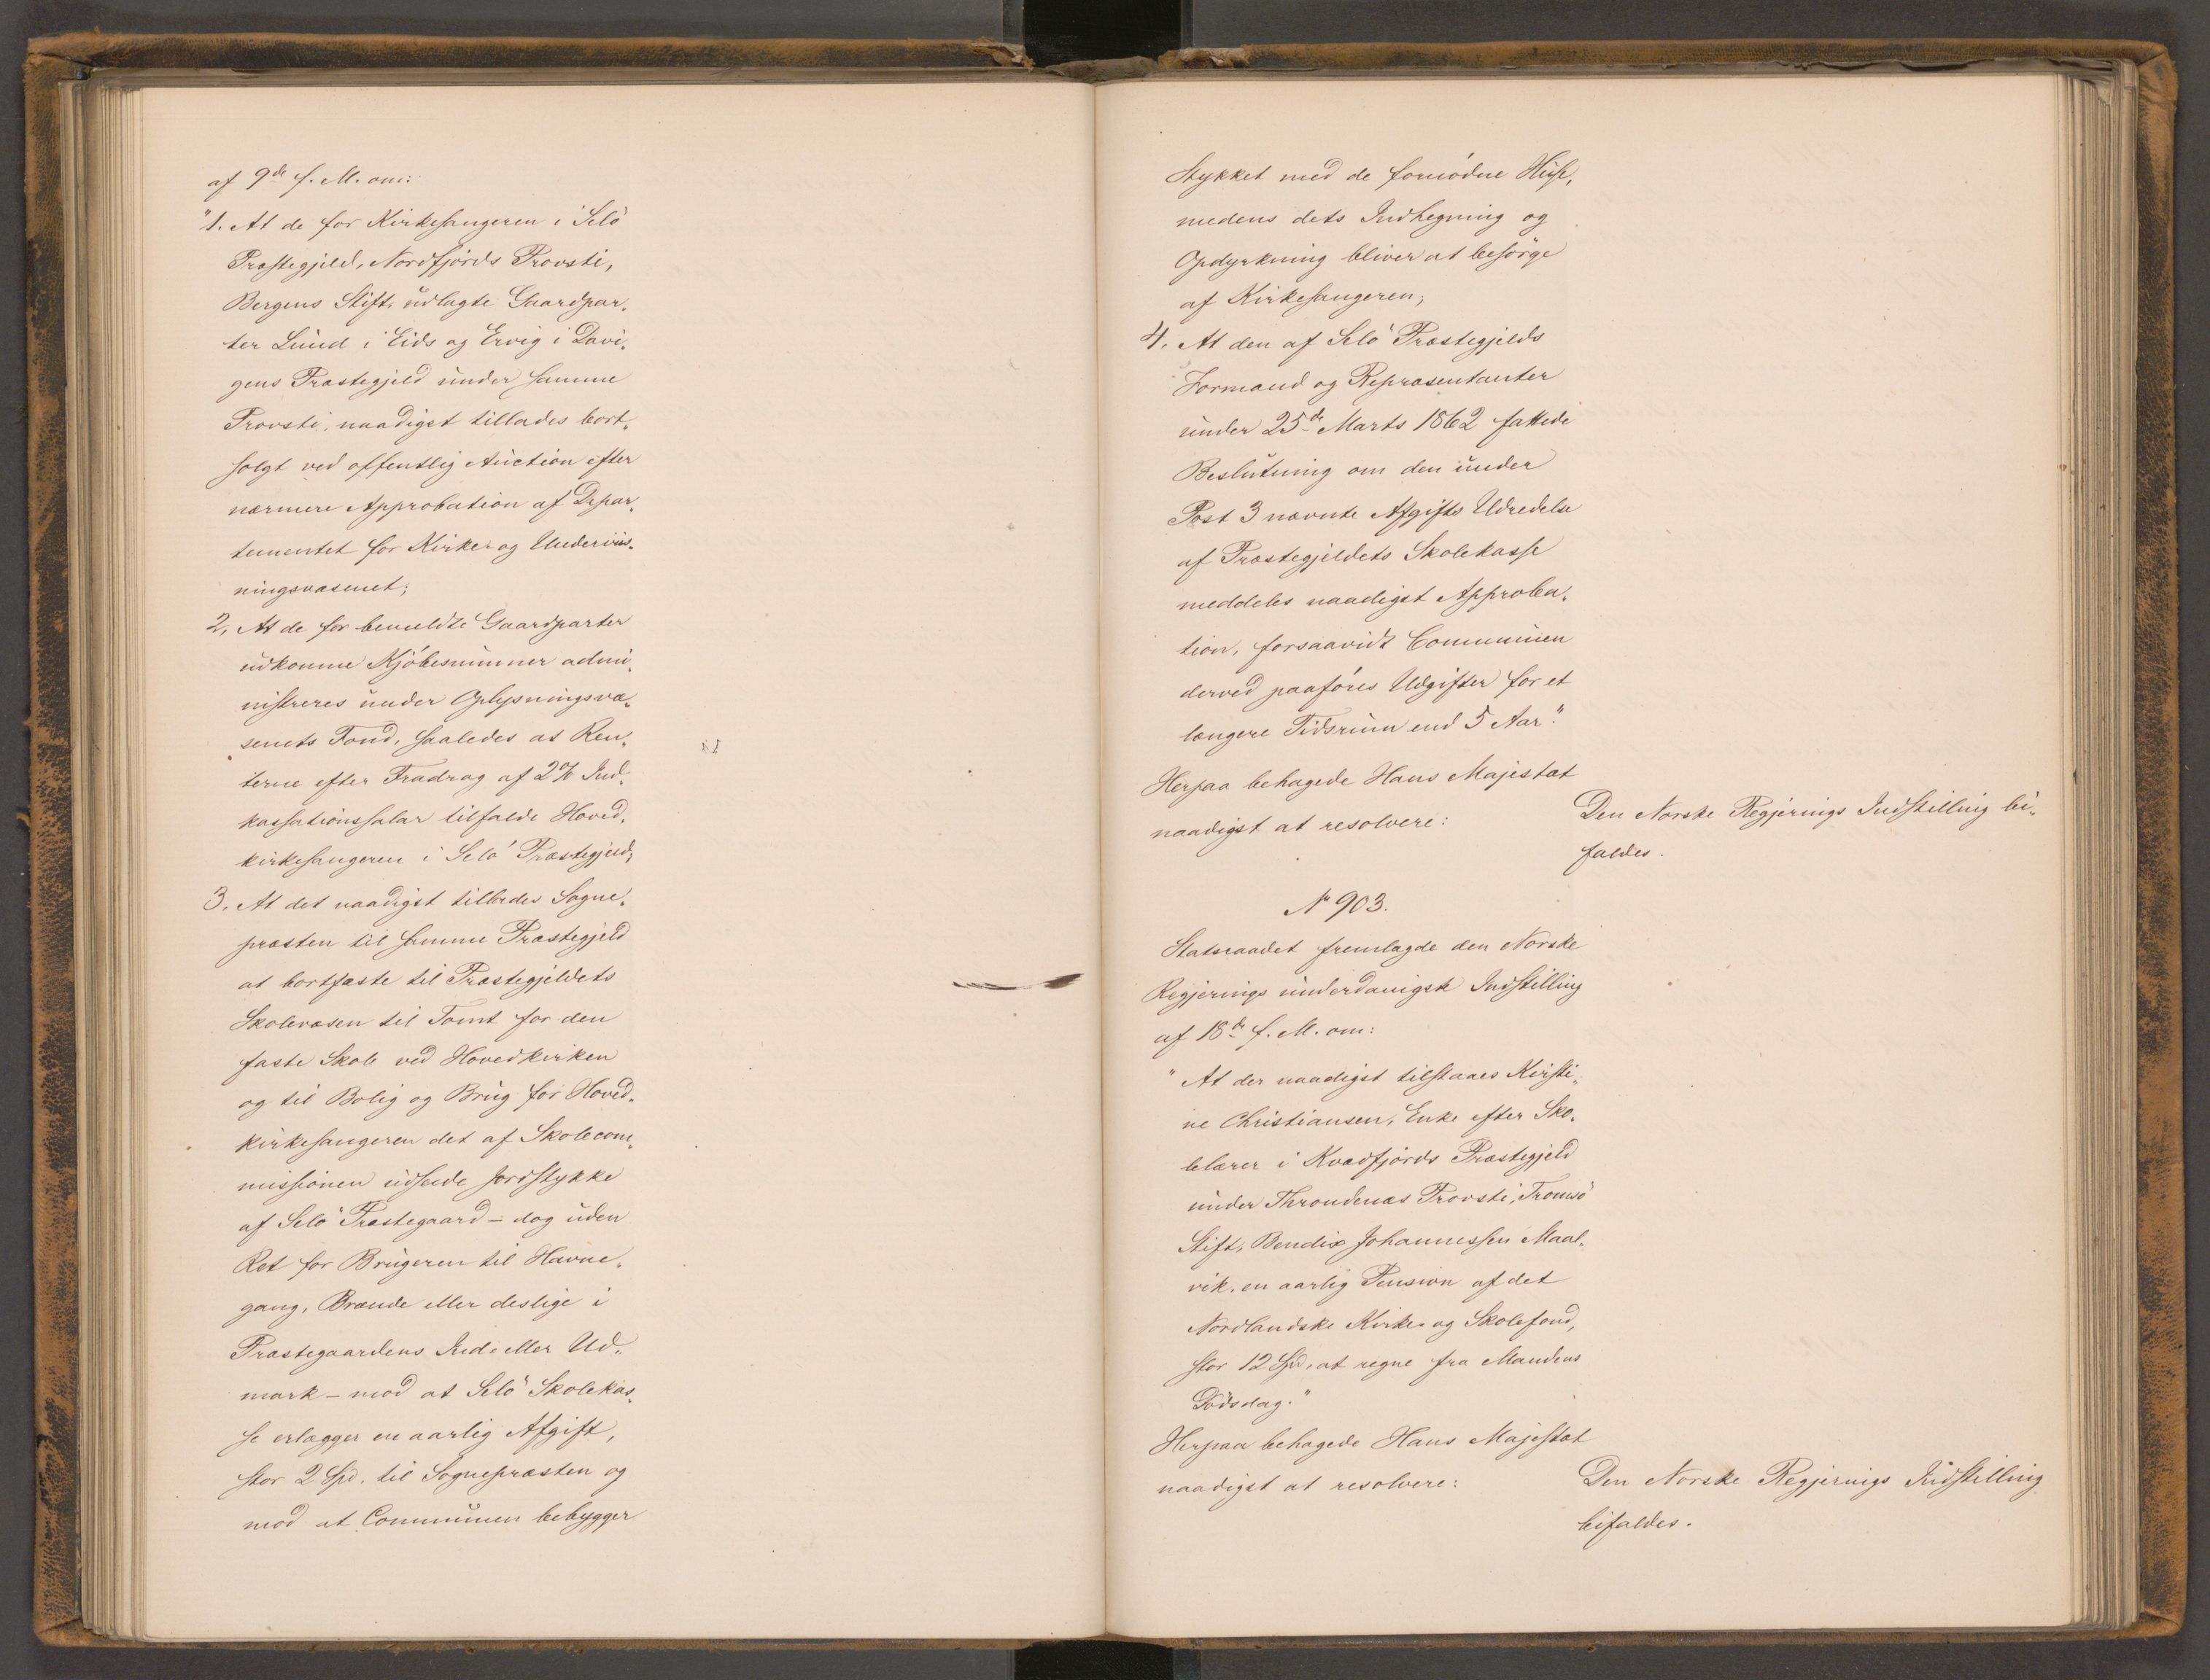 af 9de f. M. om:
"1. At de for Kirkesangeren i Selö
Præstegjeld, Nordfjords Provsti,
Bergens Stift, udlagte Gaardpar-
ter Lund i Eids og Ervig i Davi-
gens Præstegjeld under samme
Provsti, naadigst tillades bort-
solgt ved offentlig Auction efter
nærmere Approbation af Depar-
tementet for Kirke- og Underviis-
ningsvæsenet;
2, At de for bemeldte Gaardparter
udkomne Kjöbesummer admi-
nistreres under Oplysningsvæ-
senets Fond, saaledes at Ren-
terne efter Fradrag af 2% Ind-
kassationssalær tilfalde Hoved-
kirkesangeren i Selö Præstegjeld;
3. At det naadigst tillades Sogne-
præsten til samme Præstegjeld
at bortfæste til Præstegjeldets
Skolevæsen til Tomt for den
faste Skole ved Hovedkirken
og til Bolig og Brug for Hoved-
kirkesangeren det af Skolecom-
missionen udseede Jordstykke
af Selö Præstegaard – dog uden
Ret for Brugeren til Havne-
gang, Brænde eller deslige i
Præstegaardens Ind- eller Ud-
mark – mod at Selö Skolekas-
se erlægger en aarlig Afgift,
stor 2 Spd. til Sognepræsten og
mod at Communen bebygger
Stykket med de fornödne Huse,
medens dets Indhegning og
Opdyrkning bliver at besörge
af Kirkesangeren;
4. At den af Selö Præstegjelds
Formænd og Repræsentanter
under 25de Marts 1862 fattede
Beslutning om den under
Post 3 nævnte Afgifts Udredelse
af Præstegjeldets Skolekasse
meddeles naadigst Approba-
tion, forsaavidt Communen
derved paaföres Udgifter for et
længere Tidsrum end 5 Aar."
Herpaa behagede Hans Majestæt
naadigst at resolvere:
Den Norske Regjerings Indstilling bi-
faldes.
No 903.
Statsraadet fremlagde den Norske
Regjerings underdanigste Indstilling
af 18de f. M. om:
"At der naadigst tilstaaes Kirsti-
ne Christiansen, Enke efter Sko-
lelærer i Kvædfjords Præstegjeld
under Throndenæs Provsti, Tromsö
Stift, Bendix Johannessen Maal-
vik, en aarlig Pension af det
Nordlandske Kirke- og Skolefond,
stor 12 Spd, at regne fra Mandens
Dödsdag."
Herpaa behagede Hans Majestæt
naadigst at resolvere:
Den Norske Regjerings Indstilling
bifaldes.